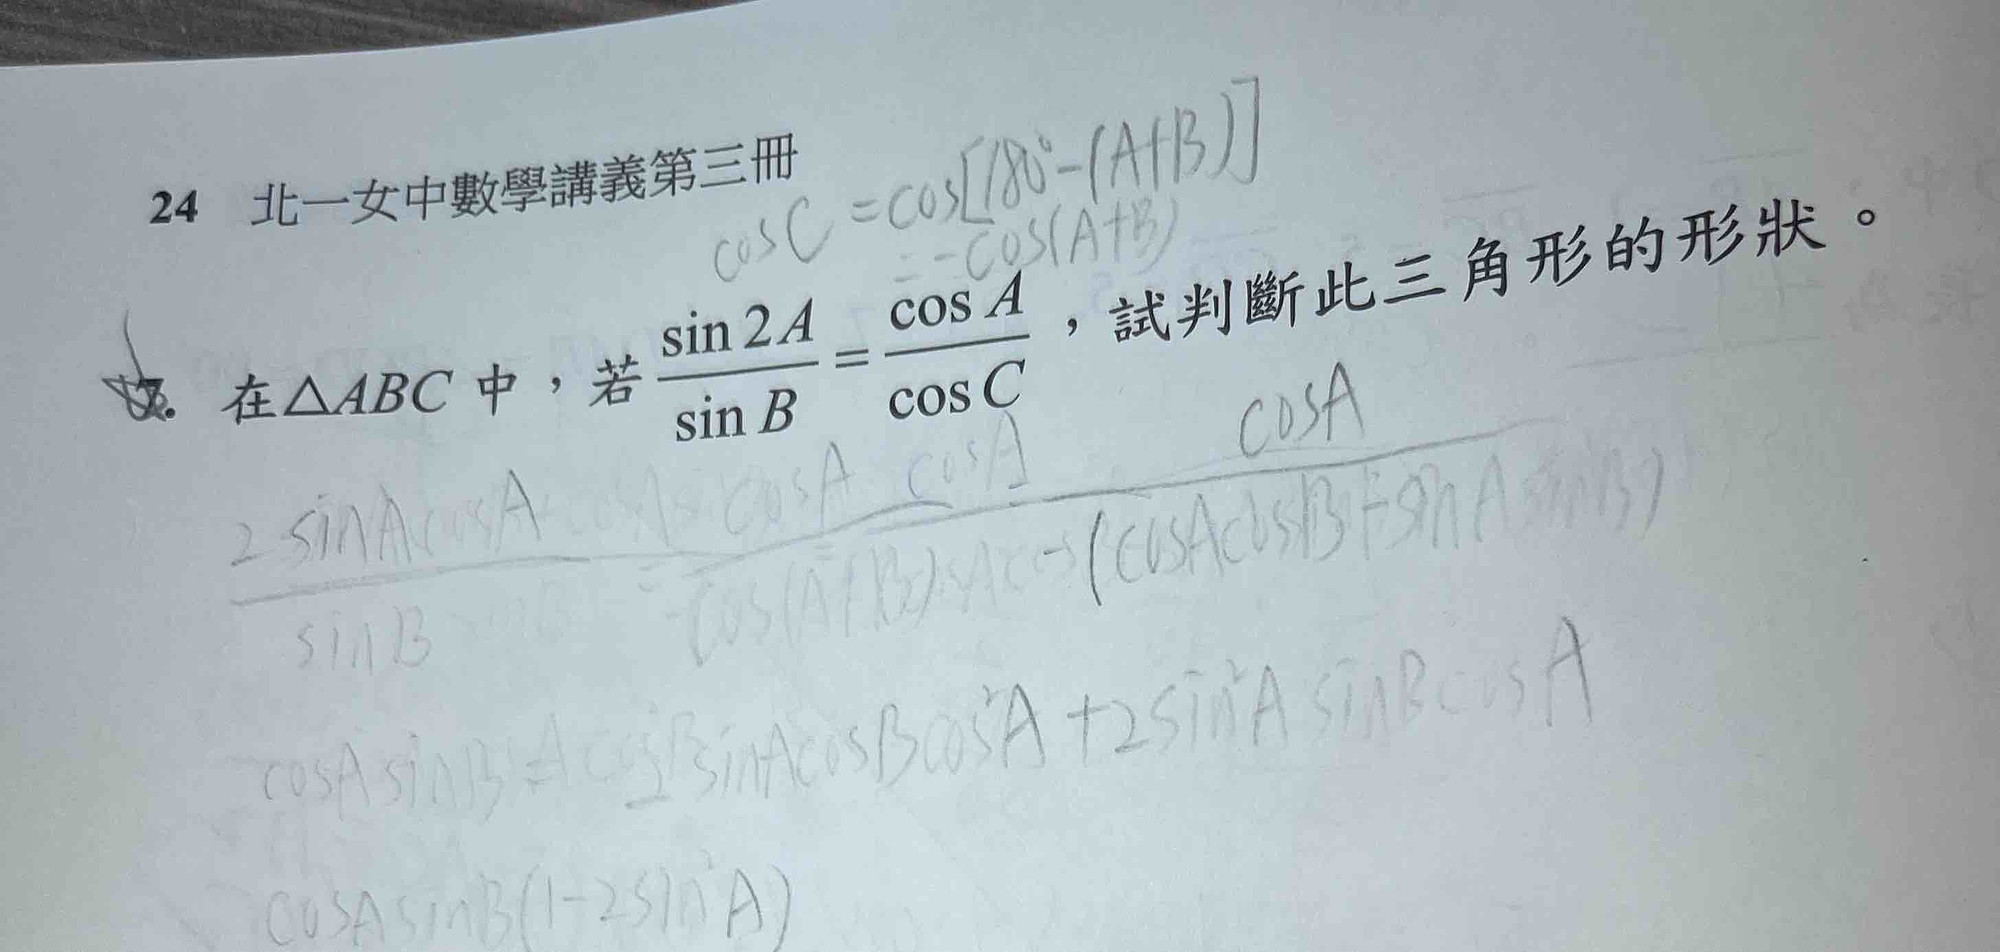 24 北一女中數學講義第三冊
cosC = cos[180°-(A+B)]
= -cos(A+B)
7. 在△ABC 中，若 sin 2A / sin B = cos A / cos C ，試判斷此三角形的形狀。
2sinAcosA / sinB = cosA / -cos(A+B) = cosA / -(cosAcosB-sinAsinB)
cosAsinB = -2sinAcosBcos²A+2sin²AsinBcosA
cosAsinB(1-2sin²A)